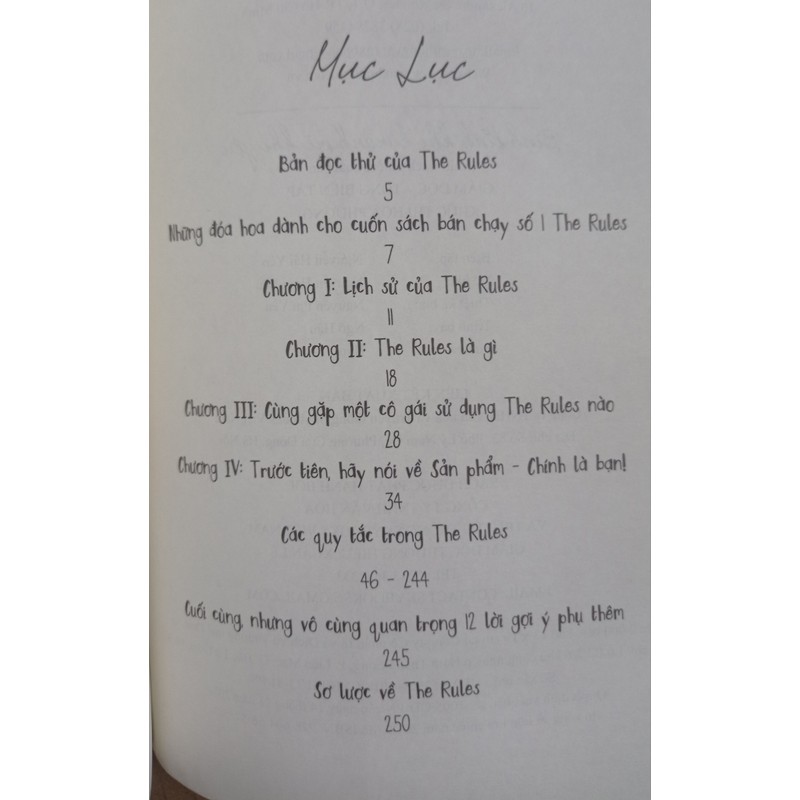 Mục Lục
Bản đọc thử của The Rules
5
Những đóa hoa dành cho cuốn sách bán chạy số 1 The Rules
7
Chương I: Lịch sử của The Rules
11
Chương II: The Rules là gì
18
Chương III: Cùng gặp một cô gái sử dụng The Rules nào
28
Chương IV: Trước tiên, hãy nói về Sản phẩm - Chính là bạn!
34
Các quy tắc trong The Rules
46 - 244
Cuối cùng, nhưng vô cùng quan trọng 12 lời gợi ý phụ thêm
245
Sơ lược về The Rules
250